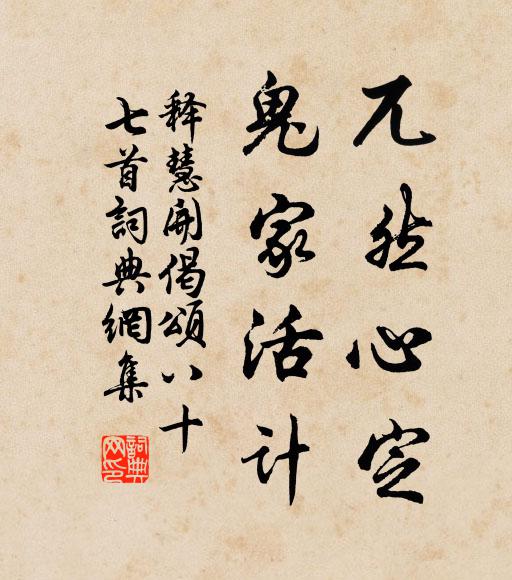 兀然心定
鬼家活计
释慧開偈頌八十
七首詞典網集
詞典
网印